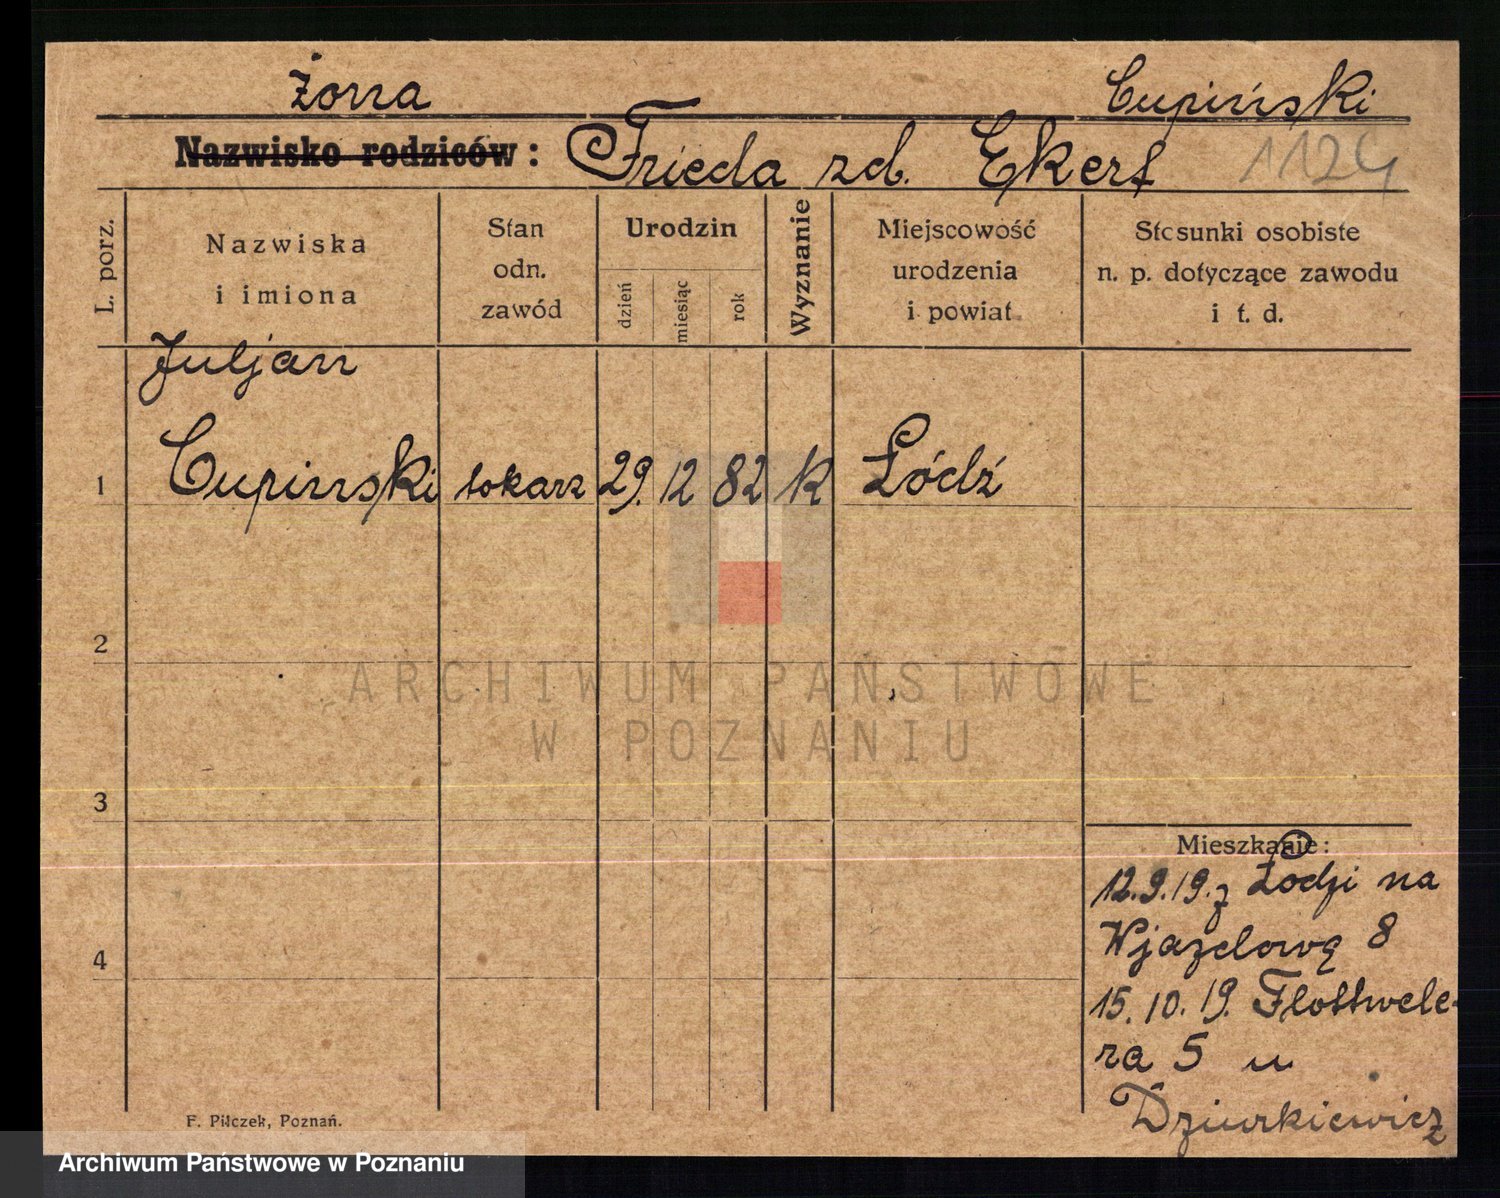 Żona Cupiński
Nazwisko rodziców: Frieda zd. Ekert 1124
L. porz.
Nazwiska
i imiona
Stan
odn.
zawód
Urodzin
dzień
miesiąc
rok
Wyznanie
Miejscowość
urodzenia
i powiat
Stosunki osobiste
n. p. dotyczące zawodu
i t. d.
Juljan
1 Cupiński tokarz 29. 12 82 K Łódź
2
3
4
Mieszkanie:
12.9.19. z Łodzi na
Wjazdową 8
15.10.19. Flottwele-
ra 5 u
Dziurkiewicz
F. Pilczek, Poznań.
ARCHIWUM PAŃSTWOWE
W POZNANIU
Archiwum Państwowe w Poznaniu